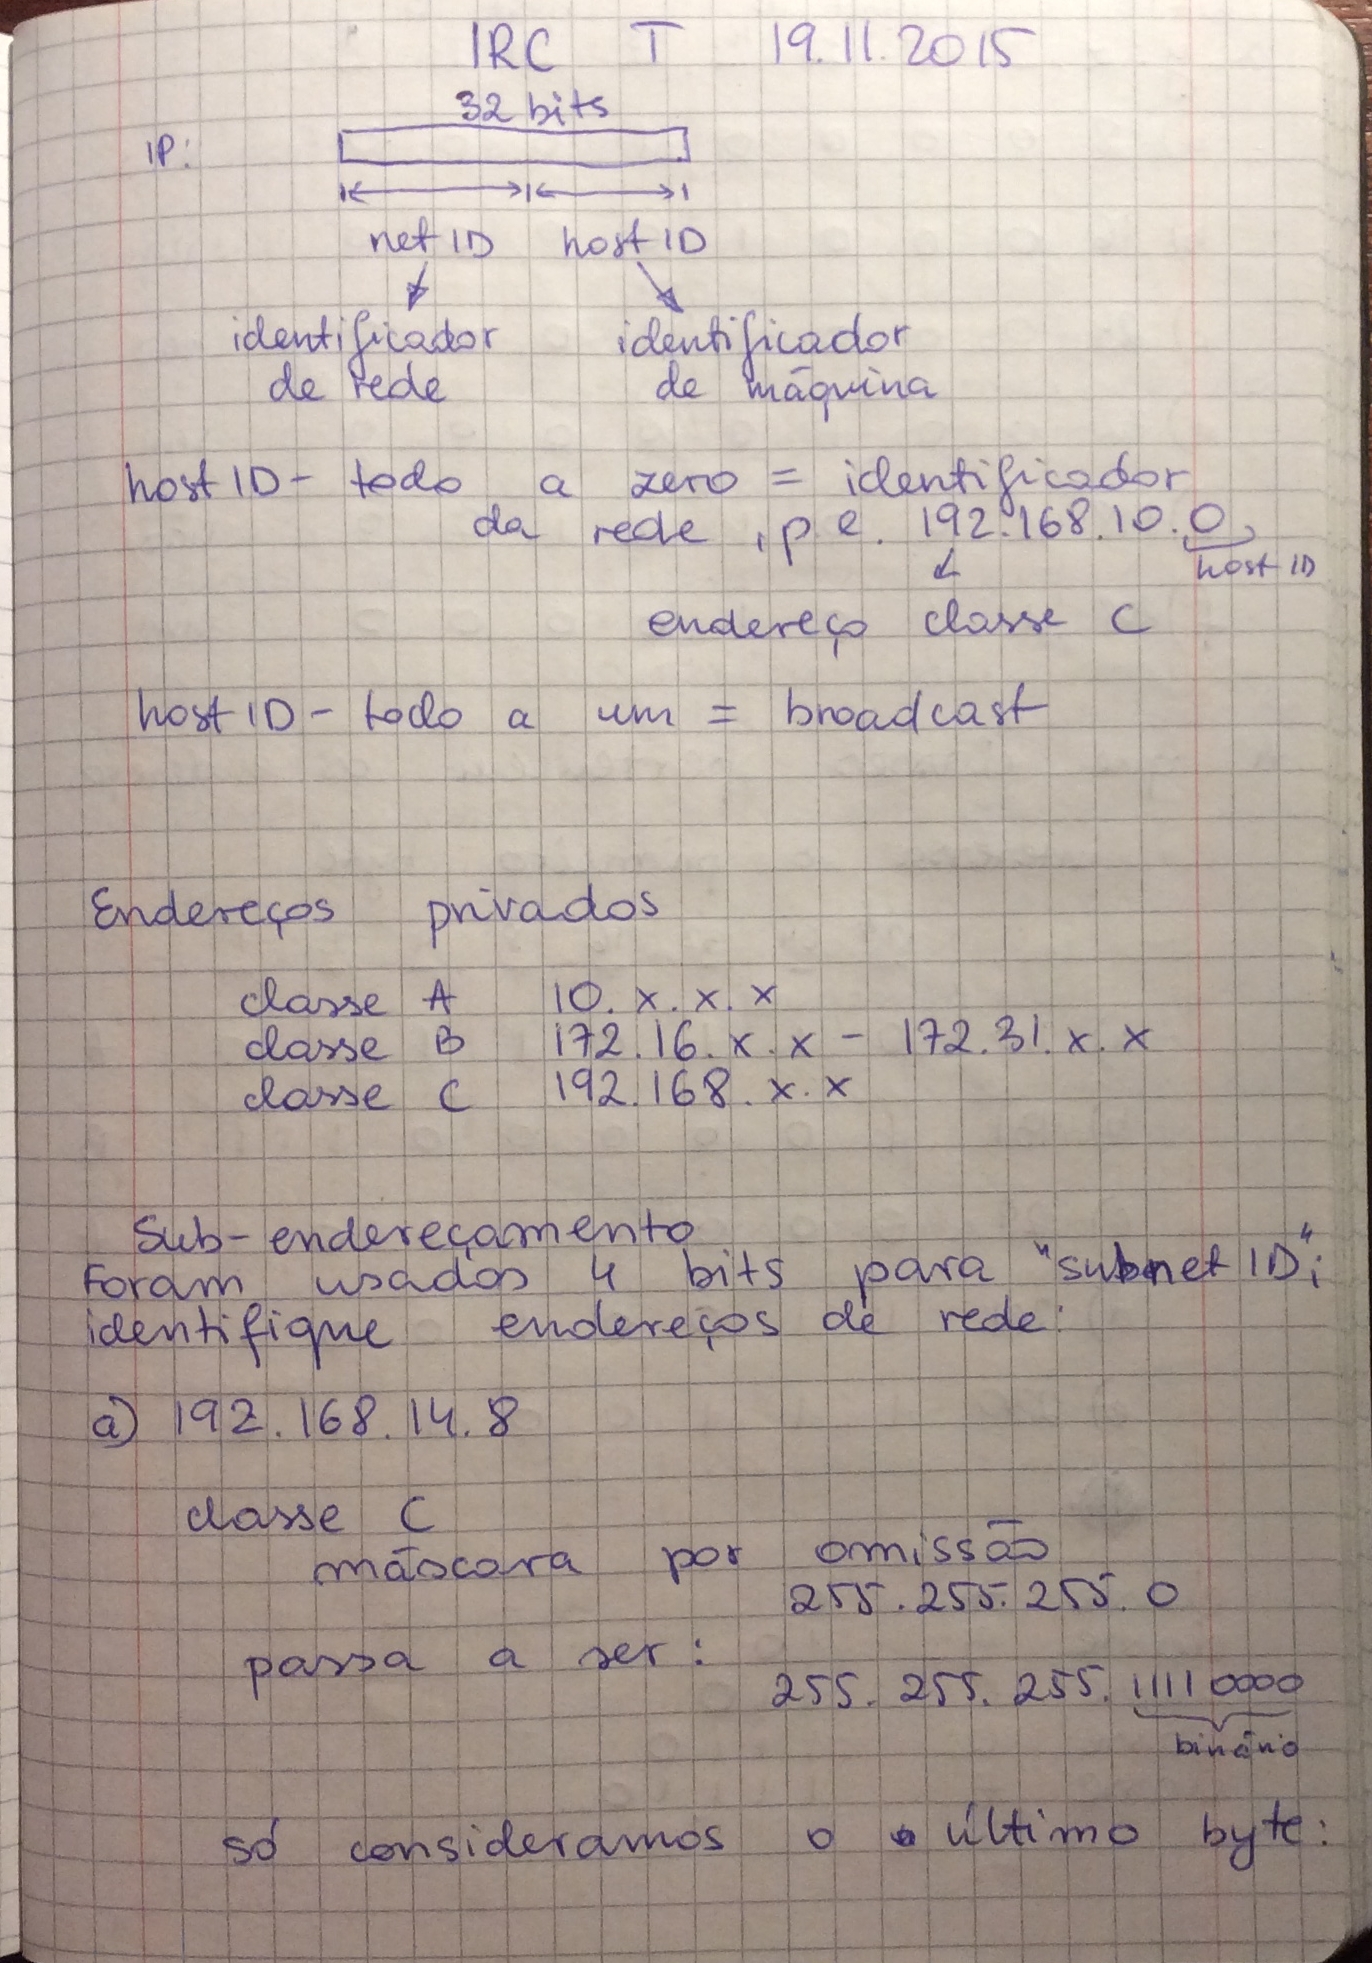 IRC T 19.11.2015
32 bits
IP:
net ID host ID
identificador identificador
de rede de máquina
host ID - todo a zero = identificador
da rede , p e. 192.168.10.0,
host ID
endereço classe C
host ID - todo a um = broadcast
Endereços privados
classe A 10. x. x. x
classe B 172.16. x. x - 172.31. x. x
classe C 192.168. x. x
Sub-endereçamento
Foram usados 4 bits para "subnet ID";
identifique endereços de rede:
a) 192.168.14.8
classe C
máscara por omissão
255.255.255.0
passa a ser:
255.255.255.11110000
binário
só consideramos o último byte: